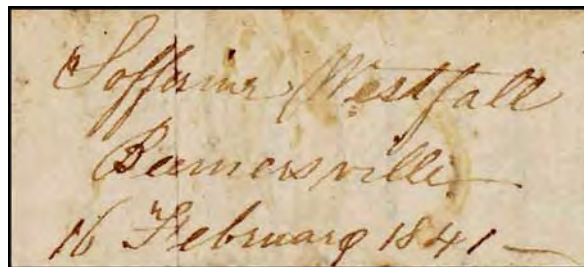 Soffrina Westfall
Beamersville
16 February 1841 —